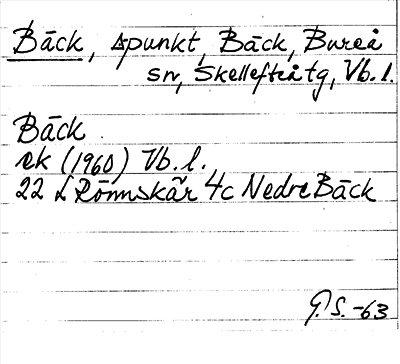 Bäck, åpunkt, Bäck, Bureå
sn, Skellefteå tg, Vb. l.
Bäck
ek (1960) Vb. l.
22 L Rönnskär 4c Nedre Bäck
G. S. -63